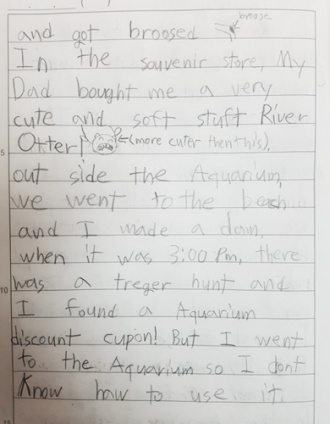 broose
and got broosed
In the souvenir store, My
Dad bought me a very
cute and soft stuft River
Otter! (more cuter then this).
5
out side the Aquarium,
we went to the beach
and I made a dam,
when it was 3:00 Pm, there
10 was a treger hunt and
I found a Aquarium
discount cupon! But I went
to the Aquarium so I dont
Know how to use it.